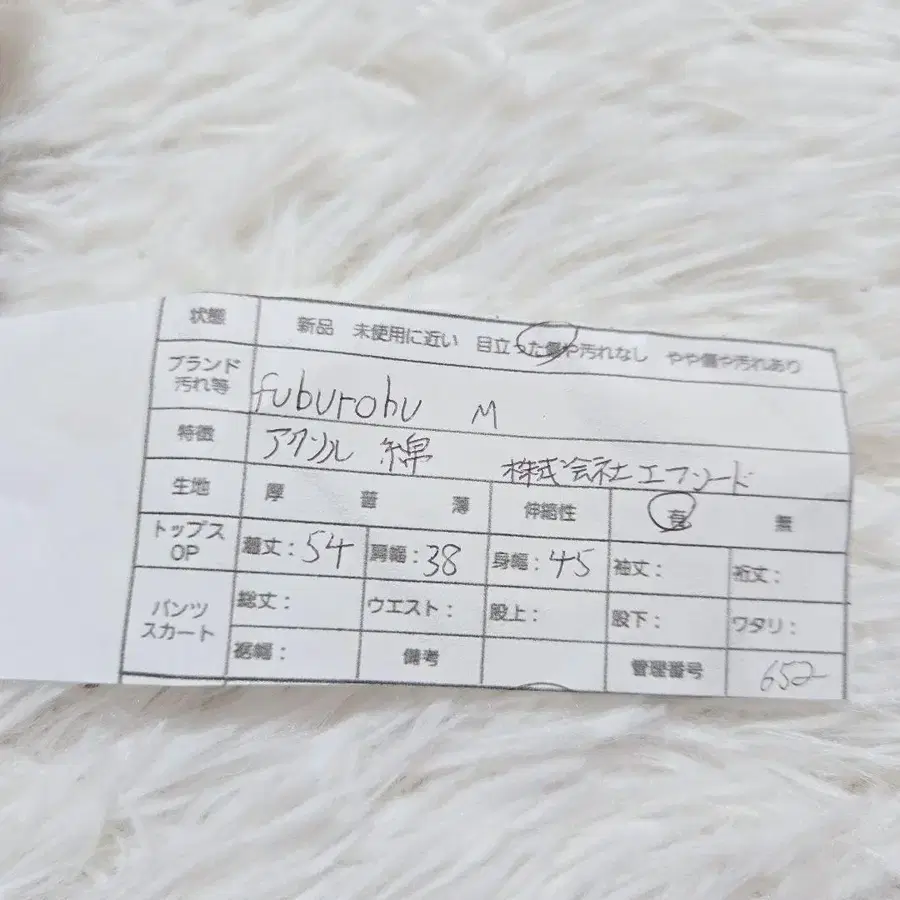 状態 新品 未使用に近い 目立った傷や汚れなし やや傷や汚れあり
ブランド
汚れ等 fuburohu M
特徴 アクリル 綿 株式会社エフリード
生地 厚 普 薄 伸縮性 有 無
トップス
OP 着丈: 54 肩幅: 38 身幅: 45 袖丈: 裄丈:
パンツ
スカート 総丈: ウエスト: 股上: 股下: ワタリ:
裾幅: 備考 管理番号 652